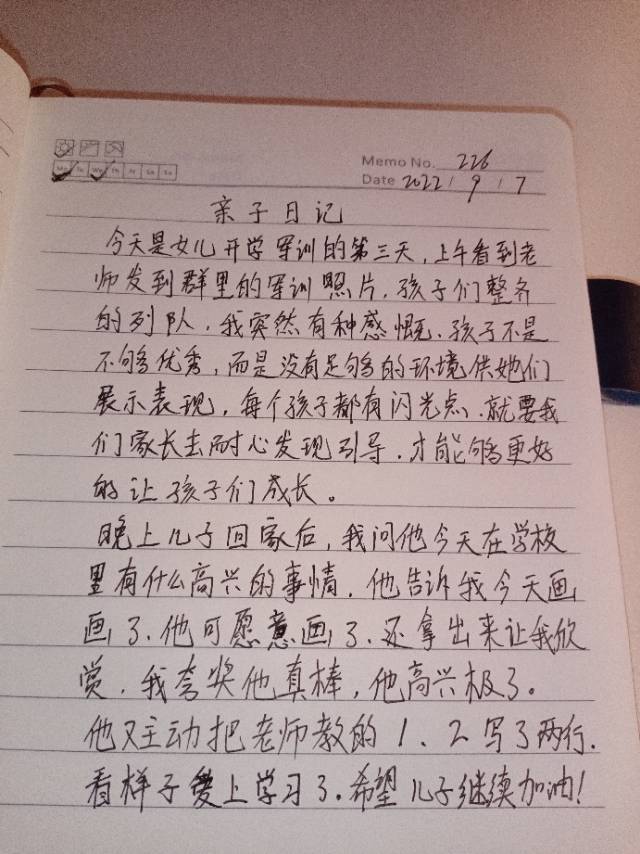 Mo Tu We Th Fr Sa Su
Memo No. 226
Date 2022 / 9 / 7
亲子日记
今天是女儿开学军训的第三天,上午看到老
师发到群里的军训照片,孩子们整齐
的列队,我突然有种感慨,孩子不是
不够优秀,而是没有足够的环境供她们
展示表现,每个孩子都有闪光点、就要我
们家长去耐心发现引导,才能够更好
的让孩子们成长。
晚上儿子回家后,我问他今天在学校
里有什么高兴的事情,他告诉我今天画
画了,他可愿意画了,还拿出来让我欣
赏,我夸奖他真棒,他高兴极了。
他又主动把老师教的1、2写了两行,
看样子爱上学习了,希望儿子继续加油!